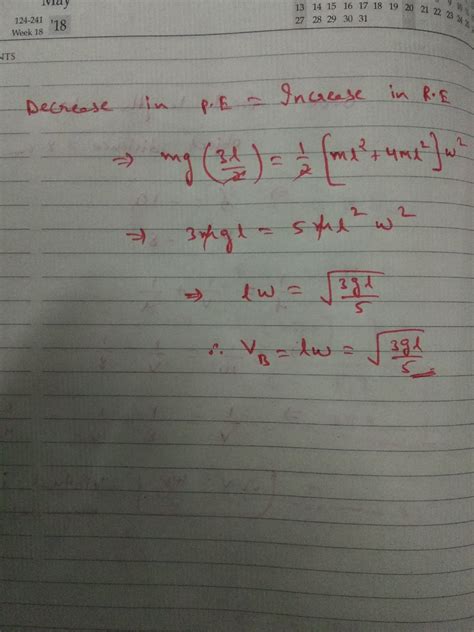 May
124-241
Week 18
'18
13 14 15 16 17 18 19 20 21 22 23 24
27 28 29 30 31
NTS
Decrease in P.E = Increase in R.E
⇒ mg (3l/2) = 1/2 [ml² + 4ml²] w²
⇒ 3mgl = 5ml² w²
⇒ lw = √(3gl/5)
∴ V_B = lw = √(3gl/5)